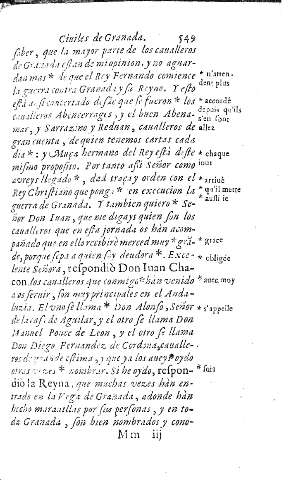 Ciuiles de Granada. 549
saber, que la mayor parte de los caualleros
de Granada estan de mi opinion, y no aguar-
dan mas * de que el Rey Fernando comience
la guerra contra Granada y su Reyno. Y esto
està assi concertado desde que se fueron * los
caualleros Abencerrages, y el buen Abena-
mar, y Sarrazino y Reduan, caualleros de
gran cuenta, de quien tenemos cartas cada
dia * : y Muça hermano del Rey està deste
mismo proposito. Por tanto assi Señor como
ayreys llegado *, dad traça y orden con el
Rey Christiano que pong * en execucion la
guerra de Granada. Y tambien quiero * Se-
ñor Don Iuan, que me digays quien son los
caualleros que en esta jornada os han acom-
pañado que en ello recibirè merced muy * grã-
de, porque sepa a quien soy deudora *. Exce-
lente Señora, respondiò Don Iuan Cha-
con los caualleros que conmigo * han venido
a os seruir, son muy principales en el Anda-
luzia. El vno se llama * Don Alonso, Señor
de la casa de Aguilar, y el otro se llama Don
Manuel Ponce de Leon, y el otro se llama
Don Diego Fernandez de Cordoua, caualle-
res de grande estima, y que ya los aueys oydo
otras vezes * nombrar. Si he oydo, respon-
diò la Reyna, que muchas vezes han en-
trado en la Vega de Granada, adonde han
hecho marauillas por sus personas, y en to-
da Granada, son bien nombrados y cono-
Mm iij
* n'atten-
dent plus
* accordé
depuis qu'ils
s'en sont
allez
* chaque
iour
* arriué
* qu'il mette
aussi ie
* grace
* obligée
* auec moy
* s'appelle
* fois